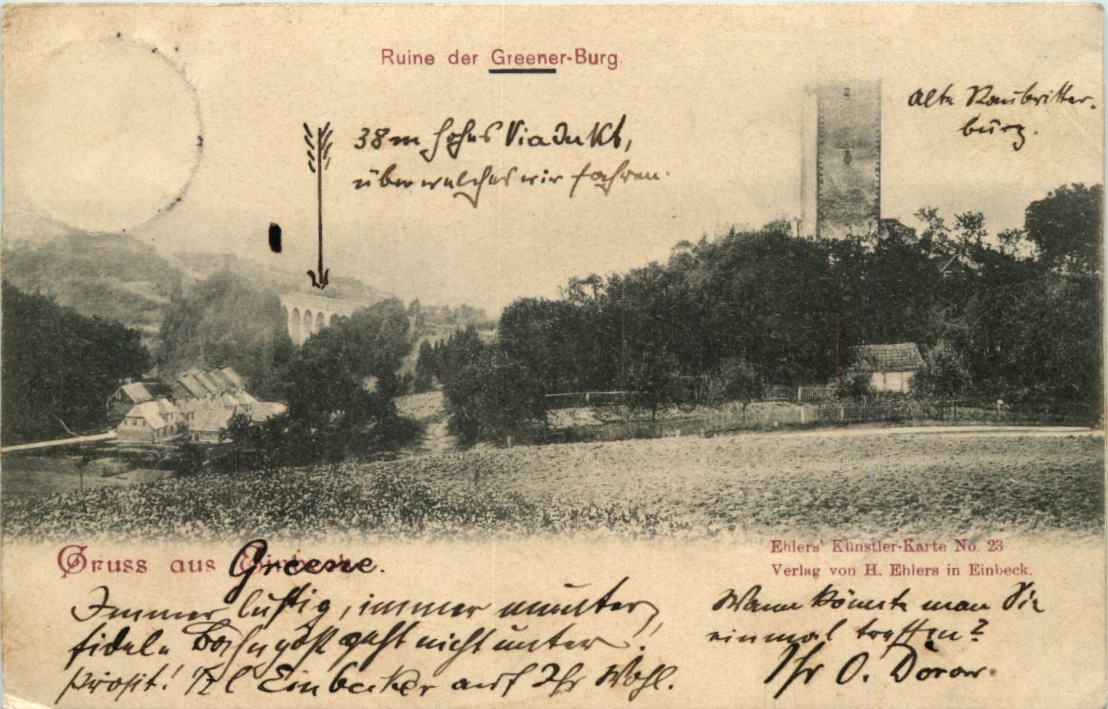 Ruine der Greener-Burg.
Alte Raubritter-
burg.
38m hohes Viadukt,
über welches wir fahren.
Gruss aus Greene.
Ehlers' Künstler-Karte No. 23
Verlag von H. Ehlers in Einbeck.
Immer lustig, immer munter,
fidele geht nicht unter.
Prosit! 1/2 l Einbecker auf Ihr Wohl.
Wann könnte man Sie
einmal treffen?
Ihr O. Dorow.